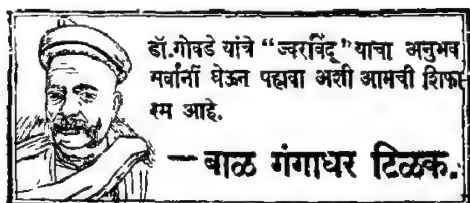 डॉ. गोवडे यांचे “ज्वरविंदू” याचा अनुभव
सर्वांनीं घेऊन पहावा अशी आमची शिफा-
रस आहे.
— बाळ गंगाधर टिळक.